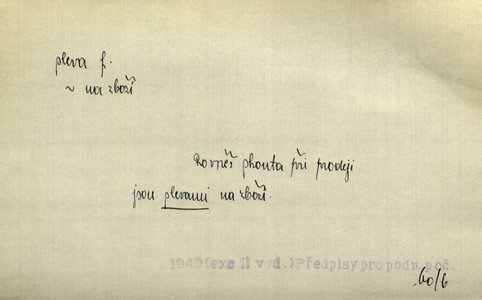 pleva f.
~ na zboží
Rovněž phonta při prodeji
jsou plevami na zboží.
1949(exc II vyd.)Předpisy pro podn.poč.
60/6